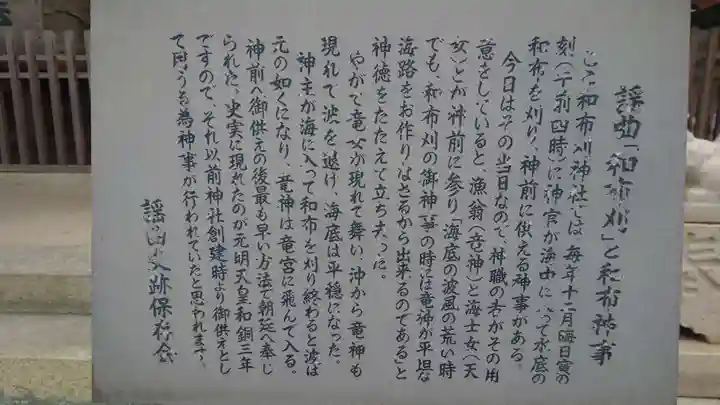 謡曲「和布刈」と和布神事
ここ和布刈神社では、毎年十二月晦日寅の
刻(午前四時)に神官が海中に入って水底の
和布を刈り、神前に供える神事がある。
今日はその当日なので、神職の者がその用
意をしていると、漁翁(竜神)と海士女(天
女)とが神前に参り「海底の波風の荒い時
でも、和布刈の御神事の時には竜神が平坦な
海路をお作りなさるから出来るのである」と
神徳をたたえて立ち去った。
やがて竜女が現れて舞い、沖から竜神も
現れて波を退け、海底は平穏になった。
神主が海に入って和布を刈り終わると波は
元の如くになり、竜神は竜宮に飛んで入る。
神前へ御供えの後最も早い方法で朝廷へ奉じ
られた。史実に現れたのが元明天皇和銅三年
ですので、それ以前神社創建時より御供えとし
て行う為神事が行われていたと思われます。
謡曲史跡保存会